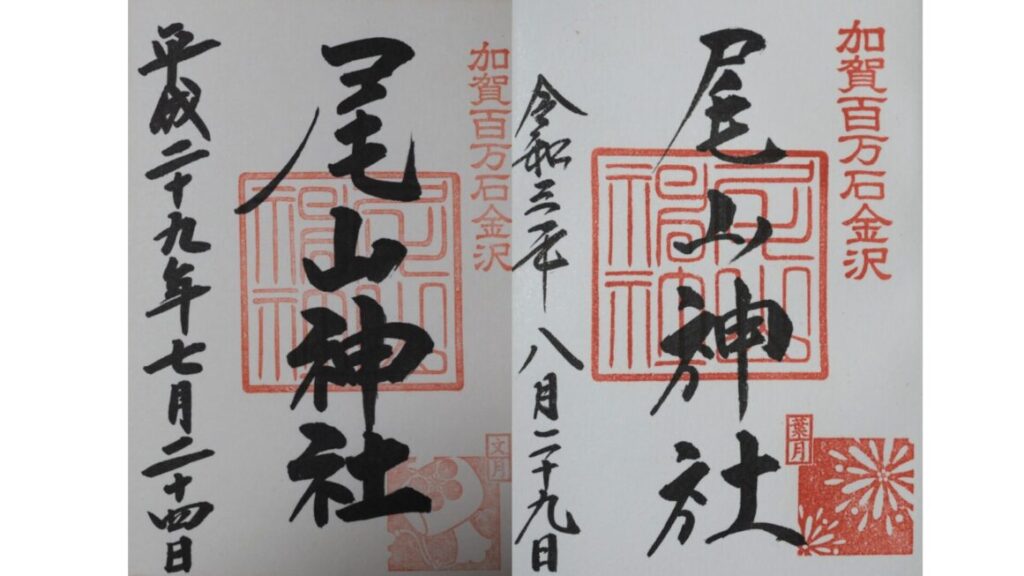 加賀百万石金沢
尾山神社
平成二十九年七月二十四日
文月
加賀百万石金沢
尾山神社
令和三年八月二十九日
葉月